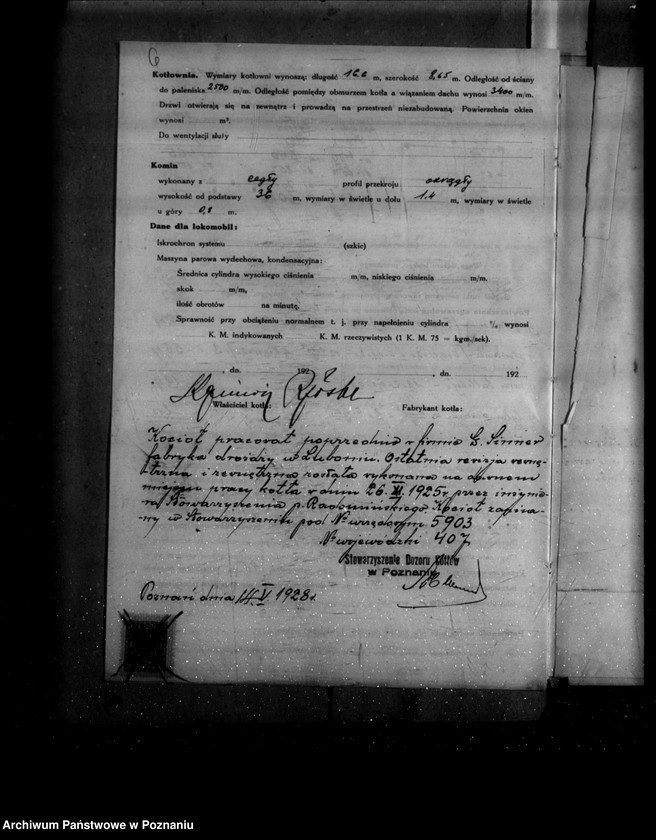 6
Kotłownia. Wymiary kotłowni wynoszą: długość 16.2 m, szerokość 9,65 m. Odległość od ściany
do paleniska 2500 m/m. Odległość pomiędzy obmurzem kotła a wiązaniem dachu wynosi 3400 m/m.
Drzwi otwierają się na zewnątrz i prowadzą na przestrzeń niezabudowaną. Powierzchnia okien
wynosi m².
Do wentylacji służy
Komin
wykonany z cegły profil przekroju okrągły
wysokość od podstawy 36 m, wymiary w świetle u dołu 1.4 m, wymiary w świetle
u góry 0,8 m.
Dane dla lokomobil:
Iskrochron systemu (szkic)
Maszyna parowa wydechowa, kondensacyjna:
Średnica cylindra wysokiego ciśnienia m/m, niskiego ciśnienia m/m.
skok m/m,
ilość obrotów na minutę.
Sprawność przy obciążeniu normalnem t. j. przy napełnieniu cylindra % wynosi
K. M. indykowanych K. M. rzeczywistych (1 K. M. 75 = kgm./sek).
, dn. 192 , dn. 192
Właściciel kotła: Fabrykant kotła:
Kocioł pracował poprzednio w firmie G. Sinner
fabryka drożdży w Luboniu. Ostatnia rewizja wewnę-
trzna i zewnętrzna została wykonana na dawnem
miejscu pracy kotła w dniu 26. XI. 1925 r. przez inżynie-
ra Stowarzyszenia p. Radomińskiego. Kocioł zapisa-
ny w Stowarzyszeniu pod № urzędowym 5903
№ wojewódzki 407
Stowarzyszenie Dozoru Kotłów
w Poznaniu
Poznań dnia 14. V. 1928 r.
Archiwum Państwowe w Poznaniu